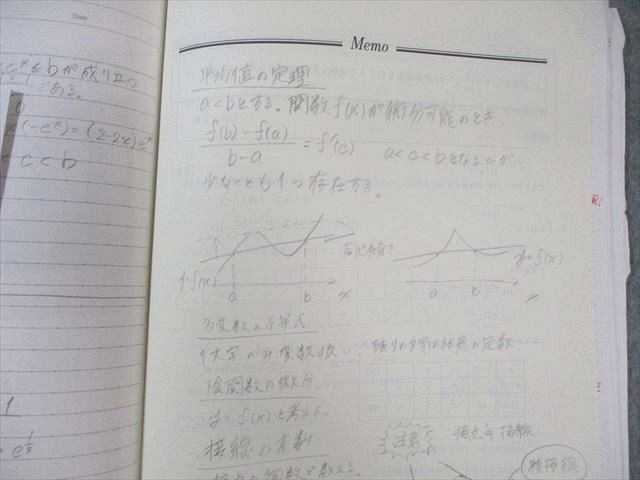 Date
e^x ≤ b が成り立つ
である。
(-e^x) = (2-2x)e^x
< c < b
1
= e^{1/3}
Memo
平均値の定理
a<bとする。関数f(x)が微分可能のとき、
f(b)-f(a)
b-a
= f'(c) a<c<bとなるcが
少なくとも1つ存在する。
同じ傾き
y=f(x) a b x
a b x y=f(x)
多変数の不等式
1文字のみ変数扱い… 残りの文字は任意の定数
陰関数の微分
y=f(x)と考える。
接線の本数
注意 接点 接線
接点の個数で数える。
複接線